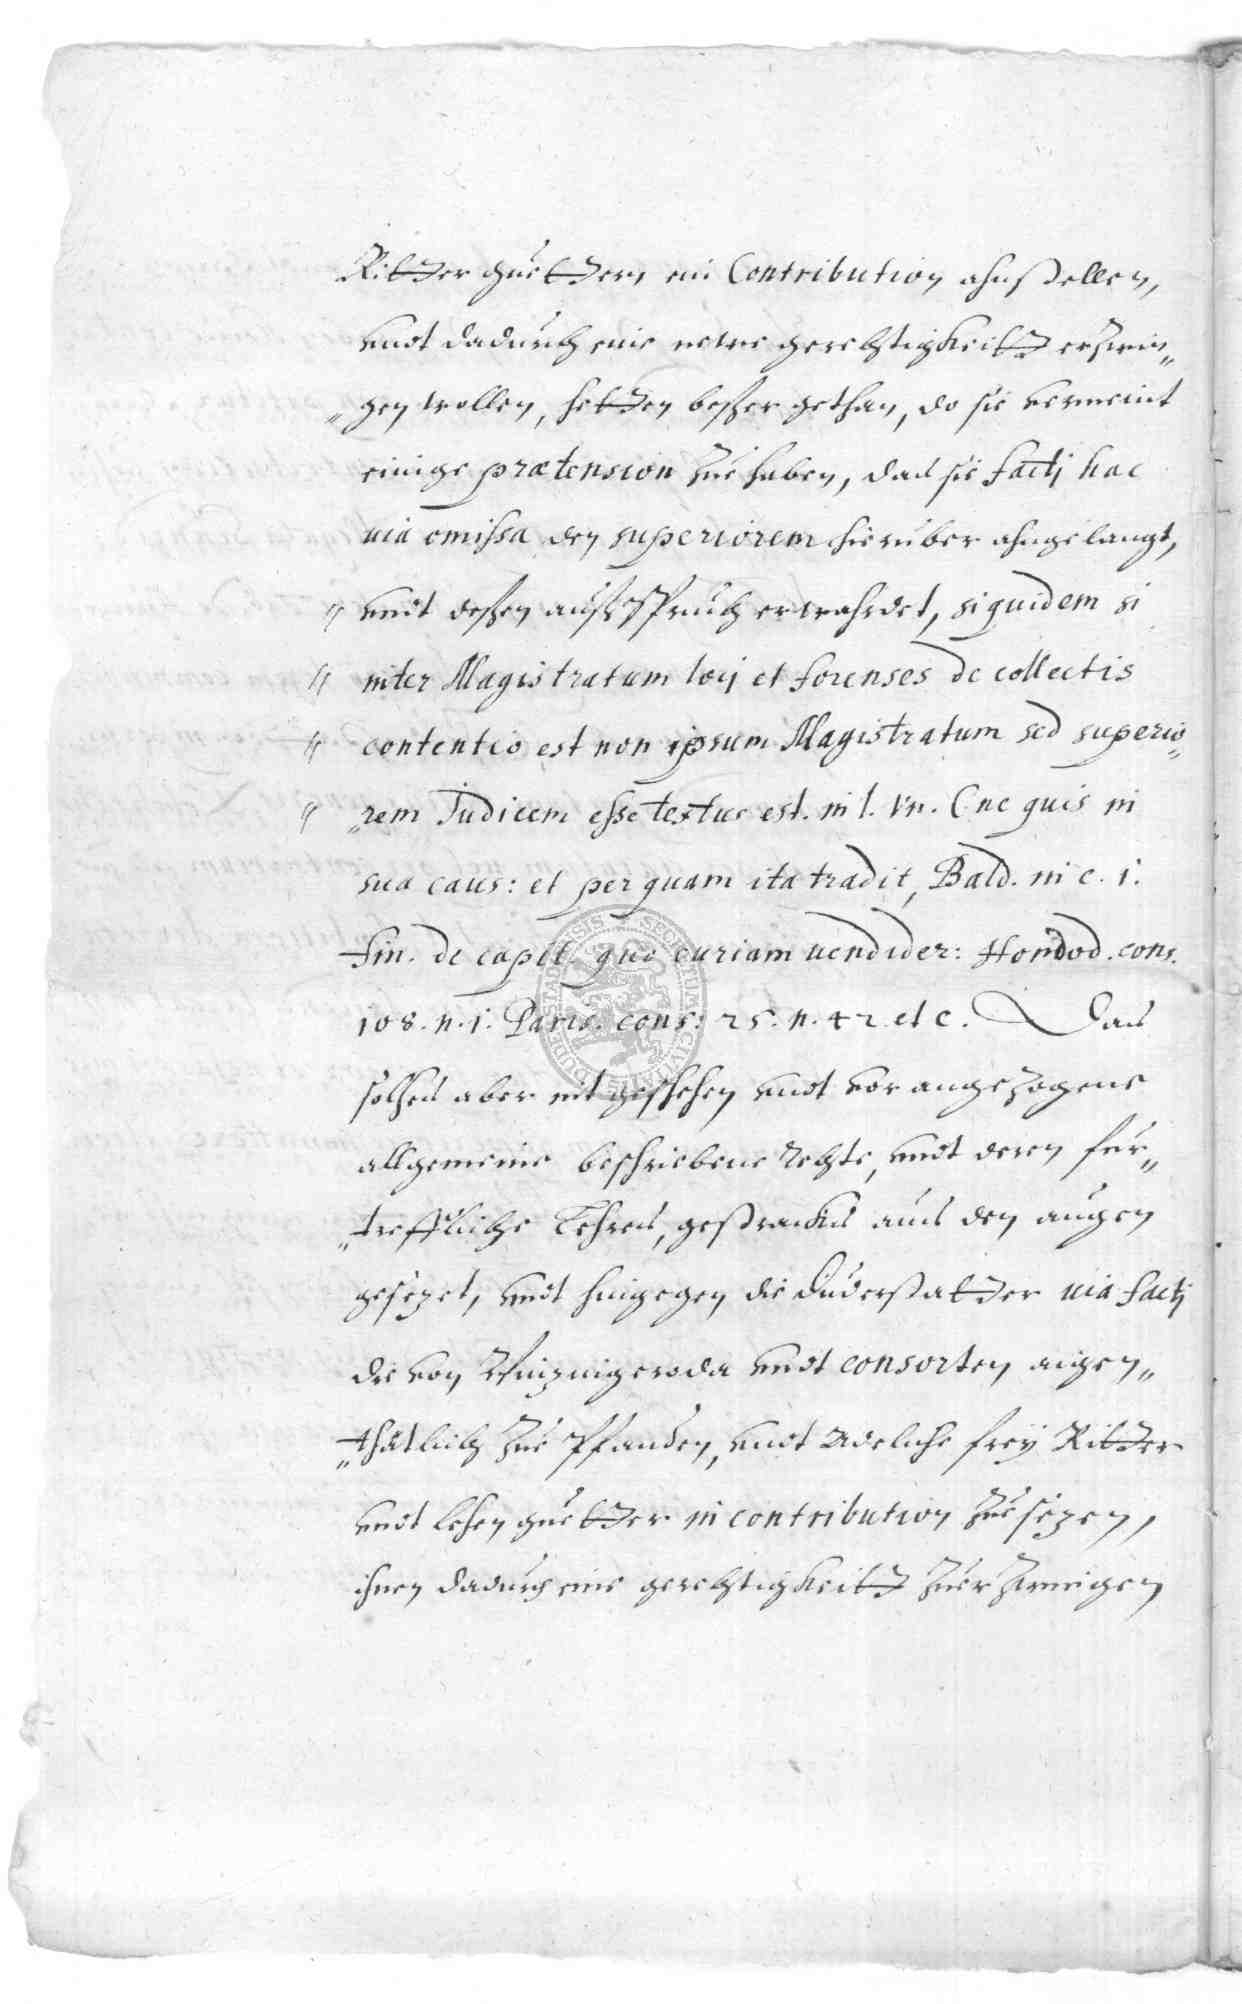 Ritter guettern ein Contribution ahnstellen,
vndt dadurch eine newe gerechtigkeitt erzwin„
„gen wollen, hetten beßer gethan, do sie vermeint
einige prætension zue haben, das sie factj hac
uia omissa den superiorem hierüber ahngelangt,
„ vndt deßen außspruch erwahrdet, siquidem si
„ inter Magistratum locj et forenses de collectis
„ contentio est non ipsum Magistratum sed superio„
„ „rem Judicem esse textus est. in l. vn. C ne quis in
sua caus: et per quam ita tradit, Bald. in c. 1.
fin. de capit. qui curiam uendider: Hondod. cons.
108. n. 1. Paris. cons: 25. n. 42. et c. Das
solches aber nit geschehen vndt vor angezogene
allgemeine beschriebene rechte, vndt deren für„
„treffliche Lehres, gestracks aus den augen
gesezet, vndt hingegen die Duderstatter uia factj
die von Winzingeroda vndt consorten aigen„
„thätlich zue Pfanden, vndt Adeliche frey Ritter
vndt lehen guetter in contribution zue sezen,
ihnen dadurch eine gerechtigkeitt zuerzwingen
SECRETUM CIVITATIS DUDERSTADENSIS